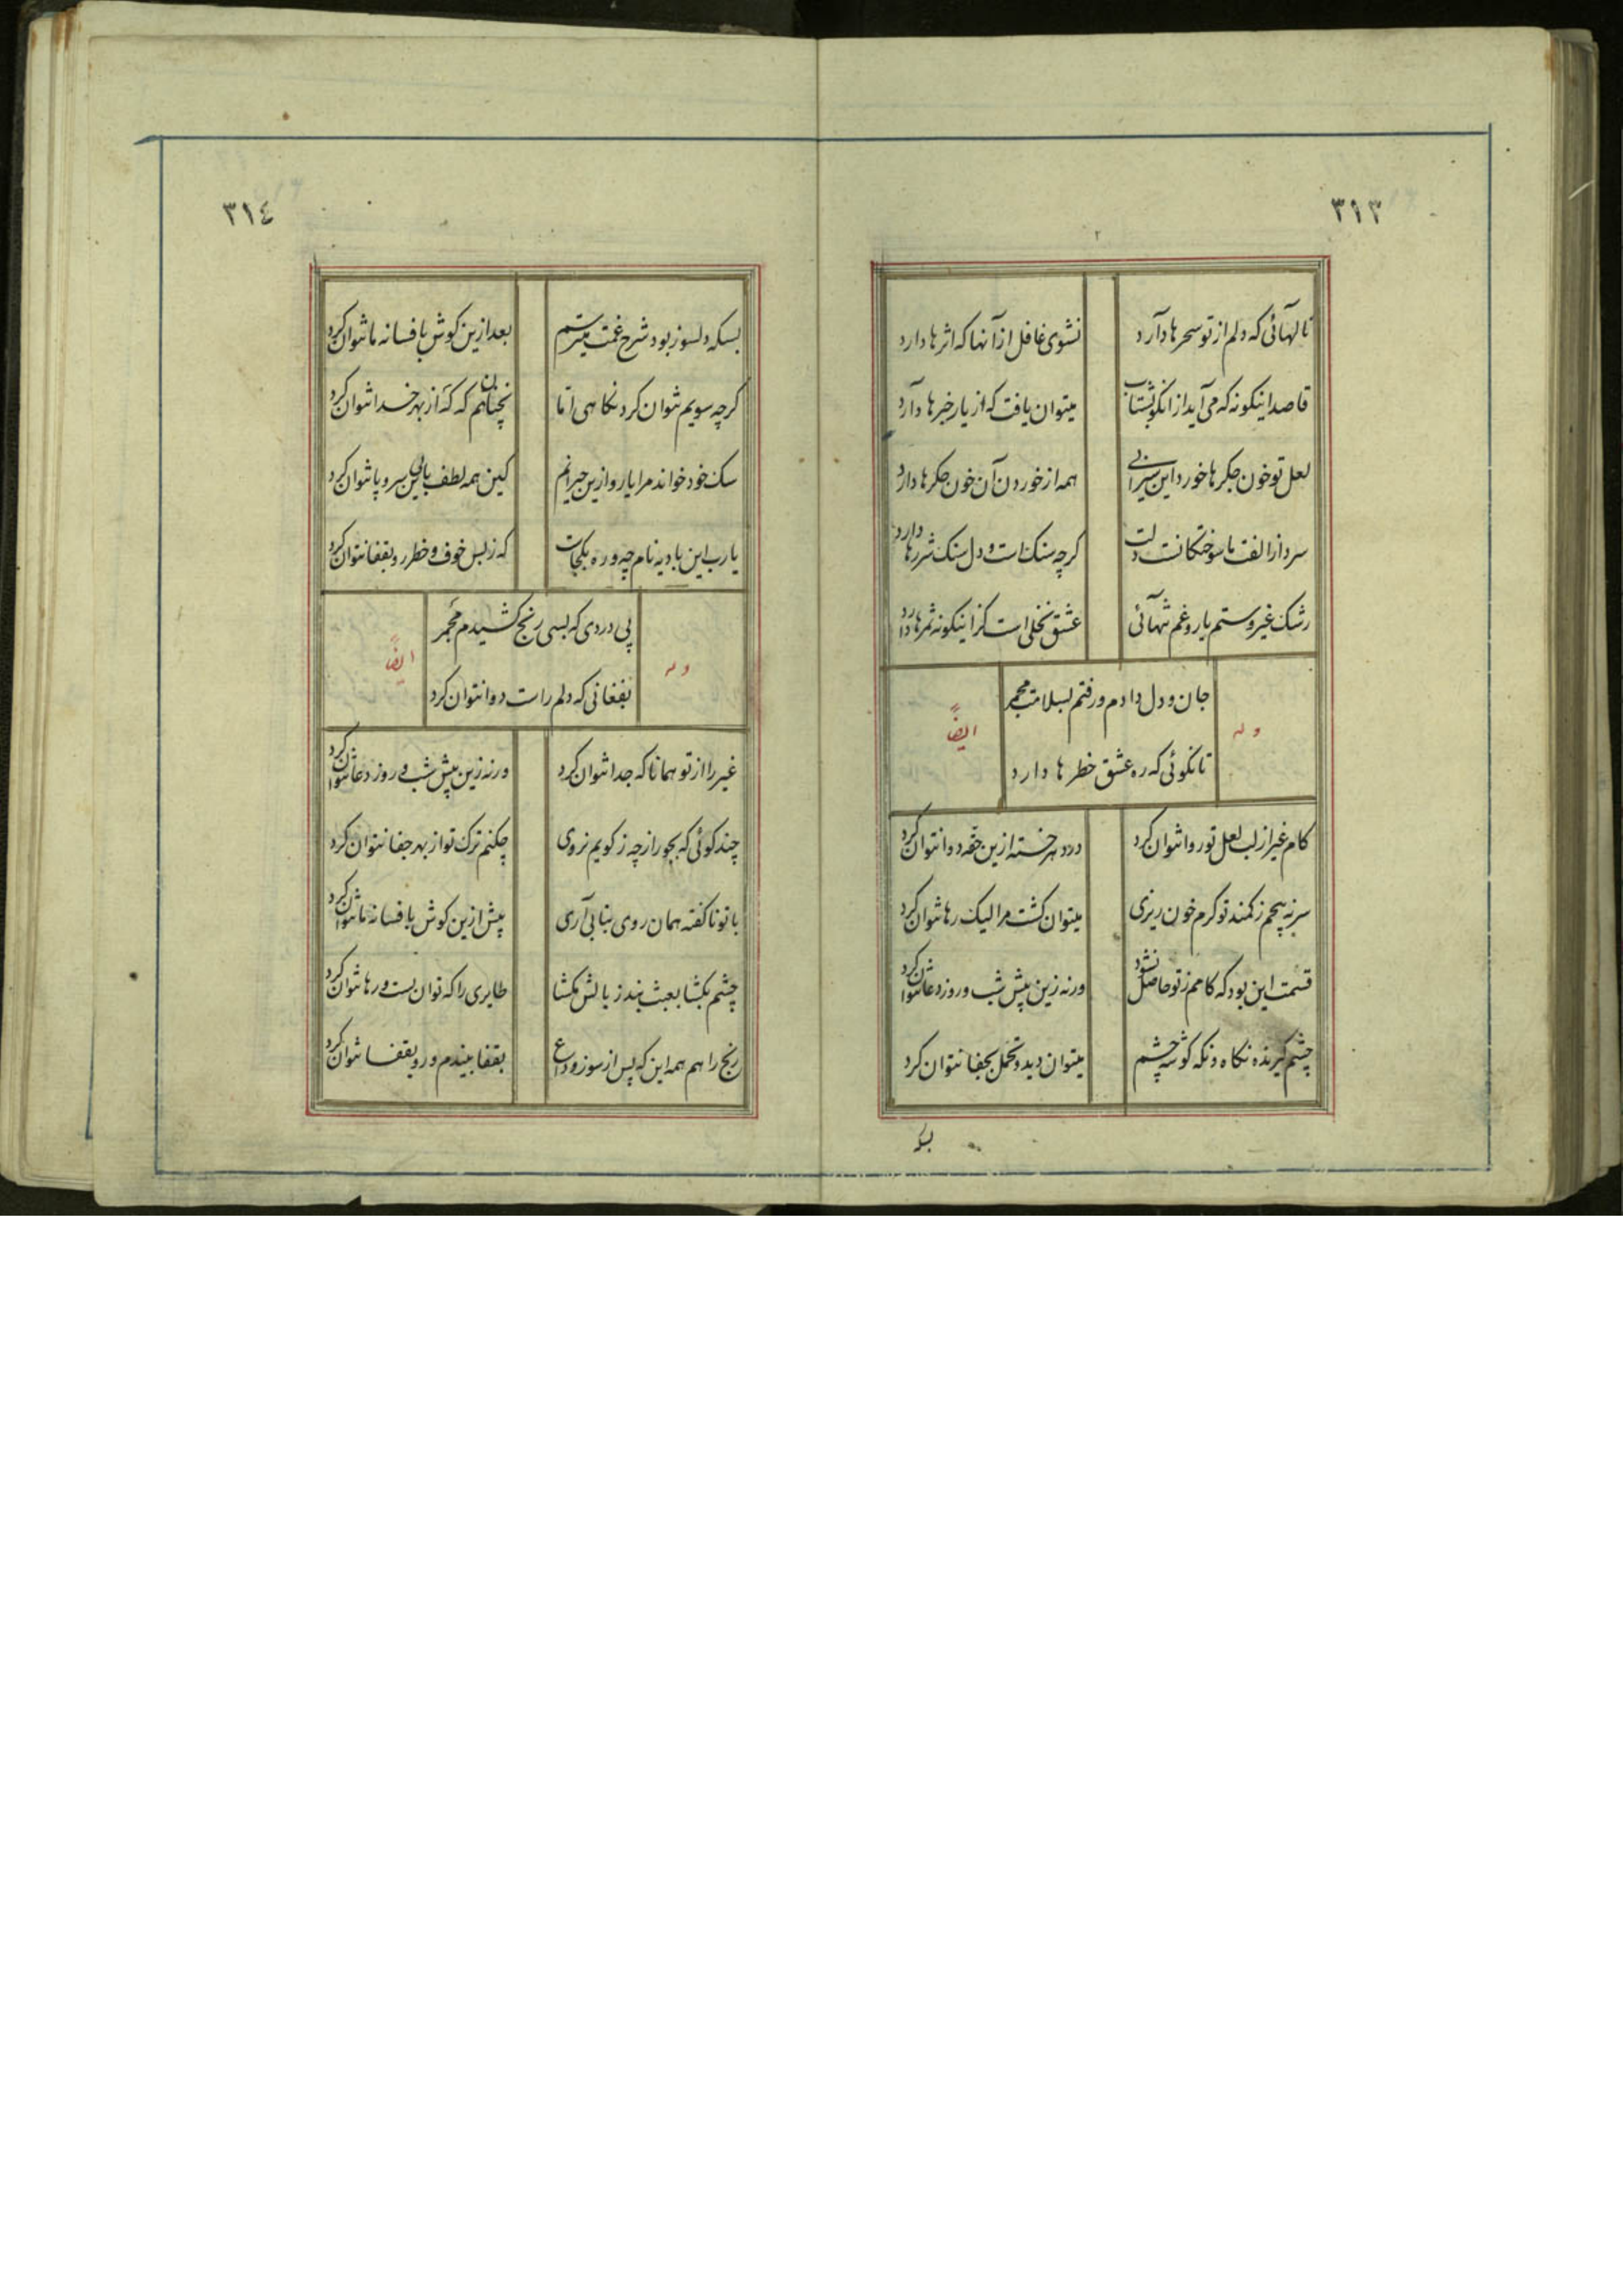 ٣١٣
نالهائی که دلم از تو سحرها دارد
نشوی غافل از آنها که اثرها دارد
قاصد اینکونه که می آید از انکو بشتاب
میتوان یافت که از یار خبرها دارد
لعل تو خون جکرها خورد این سیرابی
همه از خوردن آن خون جکرها دارد
سرد از الفت ما سوختکانست دلت
کرچه سنک است و دل سنک شررها دارد
رشک غیر و ستم یار و غم تنهائی
عشق نخلی است کز اینکونه ثمرها دارد
وله
جان و دل دادم و رفتم بسلامت مجمر
ایضاً
تا نکوئی که ره عشق خطرها دارد
کام غیر از لب لعل تو روا نتوان کرد
درد هر خسته ازین حقه دوا نتوان کرد
سر نه پیچم ز کمند تو کرم خون ریزی
میتوان کشت مرا لیک رها نتوان کرد
قسمت این بود که کامم ز تو حاصل نشود
ورنه زین پیش شب و روز دعا نتوان کرد
چشم کیرنده نکاه و نکه کوشه چشم
میتوان دید و تحمل بجفا نتوان کرد
٣١٤
بسکه دلسوز بود شرح غمت میترسم
بعد ازین کوش بافسانه ما نتوان کرد
کرچه سویم نتوان کرد نکاهی اما
نچنانهم که که از بهر خدا نتوان کرد
سک خود خواند مرا یار و ازین حیرانم
کین همه لطف باین بی سر و پا نتوان کرد
یارب این بادیه نام چه و ره بکجاست
که ز بس خوف و خطر رو بقفا نتوان کرد
وله
پی دردی که بسی رنج کشیدم مجمر
ایضاً
بفغانی که دلم راست دوا نتوان کرد
غیر را از تو همانا که جدا نتوان کرد
ورنه زین پیش شب و روز دعا نتوان کرد
چند کوئی که بجور از چه ز کویم نروی
چکنم ترک تو از بهر جفا نتوان کرد
با تو ناکفته همان روی بتابی آری
پیش ازین کوش بافسانه ما نتوان کرد
چشم بکشا بعبث بند ز بالش مکشا
طایری را که توان بست و رها نتوان کرد
رنج را هم همه این که پس از سوز وداع
بقفا بیندم و رو بقفا نتوان کرد